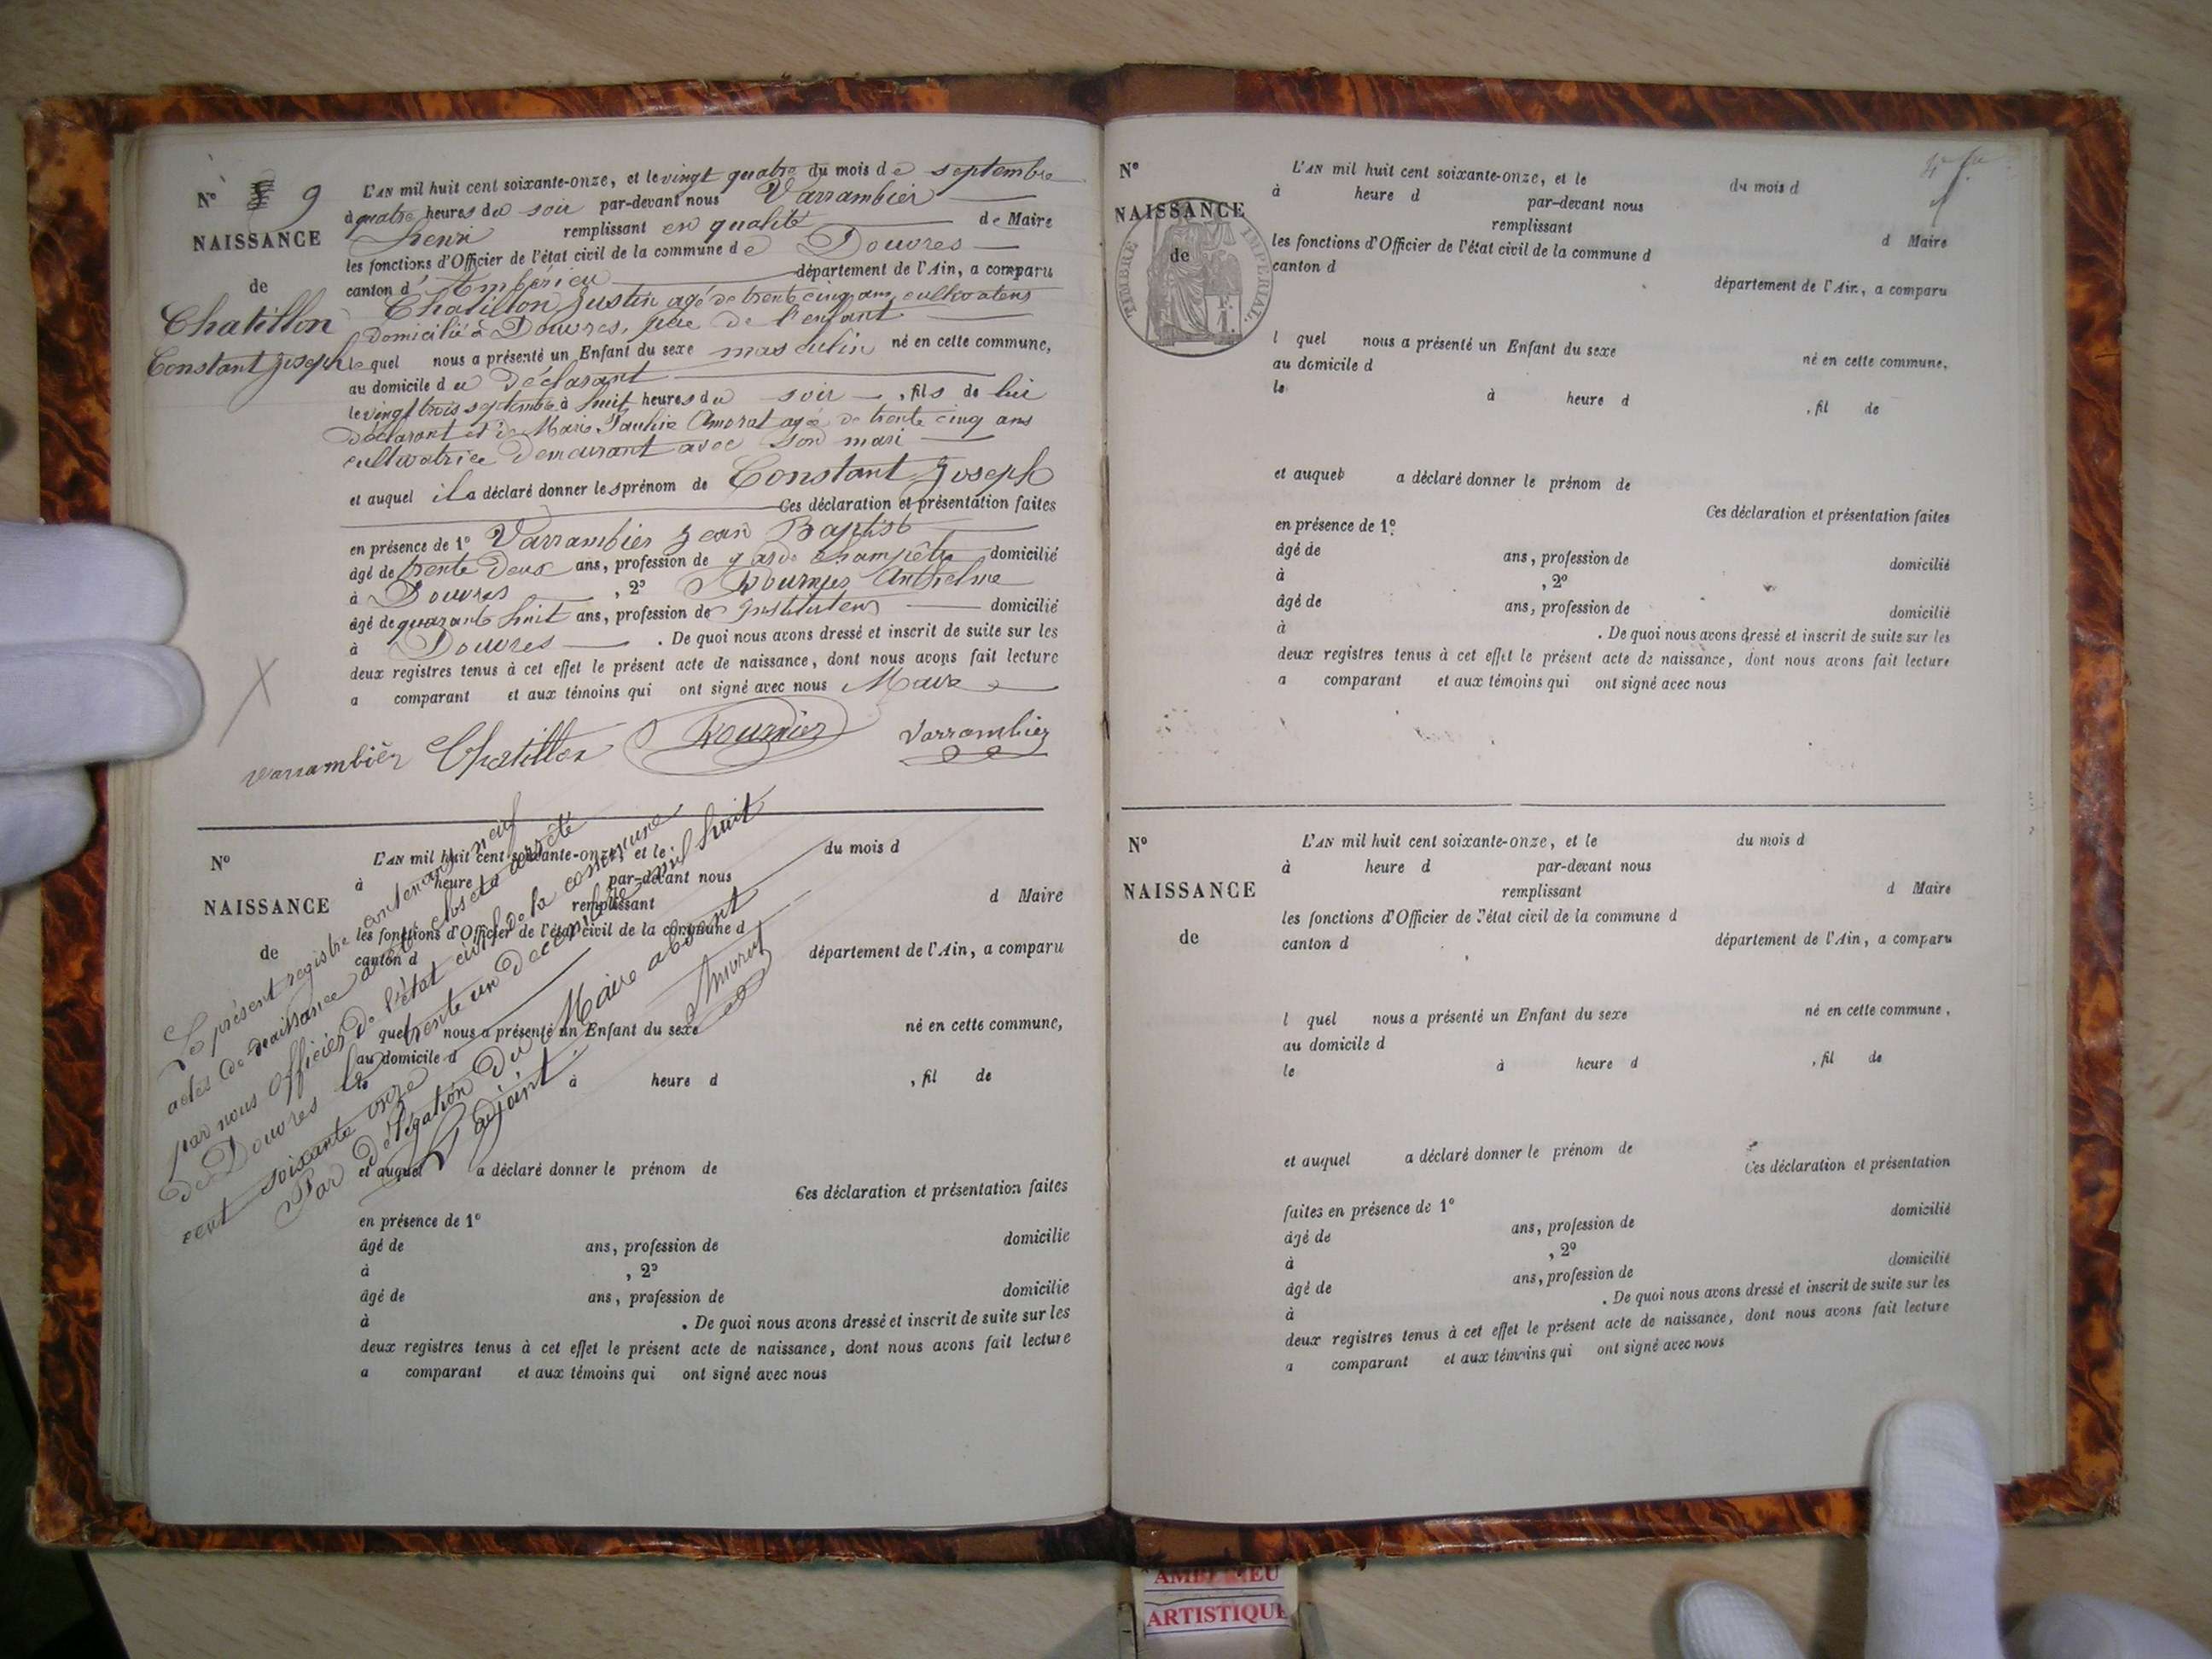 N° 9
NAISSANCE
de
Chatillon
Constant Joseph
L'AN mil huit cent soixante-onze, et le vingt quatre du mois de septembre
à quatre heures du soir par-devant nous Varrambier
henri remplissant en qualité de Maire
les fonctions d'Officier de l'état civil de la commune de Douvres
canton d'Ambérieu département de l'Ain, a comparu
Chatillon Justin agé de trente cinq ans, cultivateur
domicilié à Douvres, père de l'enfant
lequel nous a présenté un Enfant du sexe masculin né en cette commune,
au domicile du déclarant
le vingt trois septembre à huit heures du soir, fils de lui
déclarant et de Marie Pauline Amorat agée de trente cinq ans
cultivatrice demeurant avec son mari
et auquel il a déclaré donner les prénom de Constant Joseph
Ces déclaration et présentation faites
en présence de 1° Varrambier Jean Baptist
âgé de trente deux ans, profession de garde champêtre domicilié
à Douvres, 2° Anthelme
âgé de quarante huit ans, profession de Instituteur domicilié
à Douvres. De quoi nous avons dressé et inscrit de suite sur les
deux registres tenus à cet effet le présent acte de naissance, dont nous avons fait lecture
a comparant et aux témoins qui ont signé avec nous Maire
varrambier Chatillon Varrambier
N°
NAISSANCE
de
L'AN mil huit cent soixante-onze, et le du mois d
à heure d par-devant nous
remplissant d Maire
les fonctions d'Officier de l'état civil de la commune d
canton d département de l'Ain, a comparu
quel nous a présenté un Enfant du sexe né en cette commune,
au domicile d
le à heure d , fil de
et auquel a déclaré donner le prénom de
Ces déclaration et présentation faites
en présence de 1°
âgé de ans, profession de domicilie
à , 2°
âgé de ans, profession de domicilie
à . De quoi nous avons dressé et inscrit de suite sur les
deux registres tenus à cet effet le présent acte de naissance, dont nous avons fait lecture
a comparant et aux témoins qui ont signé avec nous
Le présent registre contenant neuf
actes de naissance a été clos et arrêté
par nous Officier de l'état civil de la commune
de Douvres le trente un décembre mil huit
cent soixante onze
Par délégation du Maire absent
L'adjoint
N°
NAISSANCE
de
TIMBRE IMPERIAL
L'AN mil huit cent soixante-onze, et le du mois d
à heure d par-devant nous
remplissant d Maire
les fonctions d'Officier de l'état civil de la commune d
canton d département de l'Ain, a comparu
l quel nous a présenté un Enfant du sexe né en cette commune,
au domicile d
le à heure d , fil de
et auquel a déclaré donner le prénom de
Ces déclaration et présentation faites
en présence de 1°
âgé de ans, profession de domicilié
à , 2°
âgé de ans, profession de domicilié
à . De quoi nous avons dressé et inscrit de suite sur les
deux registres tenus à cet effet le présent acte de naissance, dont nous avons fait lecture
a comparant et aux témoins qui ont signé avec nous
N°
NAISSANCE
de
L'AN mil huit cent soixante-onze, et le du mois d
à heure d par-devant nous
remplissant d Maire
les fonctions d'Officier de l'état civil de la commune d
canton d département de l'Ain, a comparu
l quel nous a présenté un Enfant du sexe né en cette commune,
au domicile d
le à heure d , fil de
et auquel a déclaré donner le prénom de
Ces déclaration et présentation
faites en présence de 1° domicilié
âgé de ans, profession de
à , 2° domicilié
âgé de ans, profession de
à . De quoi nous avons dressé et inscrit de suite sur les
deux registres tenus à cet effet le présent acte de naissance, dont nous avons fait lecture
a comparant et aux témoins qui ont signé avec nous
ARTISTIQUE